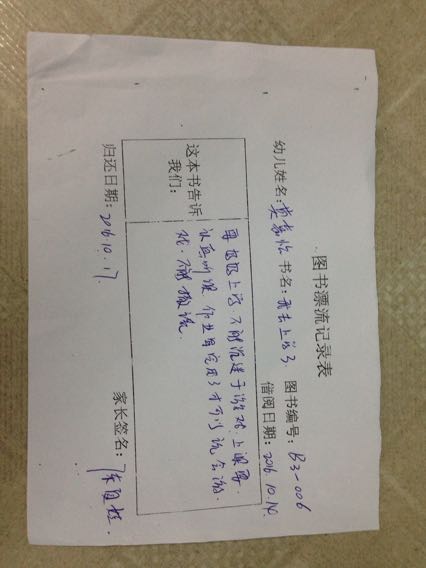 图书漂流记录表
图书编号：B3-006
幼儿姓名： 书名：我去上学了 借阅日期：2016.10.14
这本书告诉
我们：
上学，不能沉迷于游戏，上课要
认真听课，作业写完了才可以玩会游
戏，不能撒谎。
家长签名：
归还日期：2016.10.17